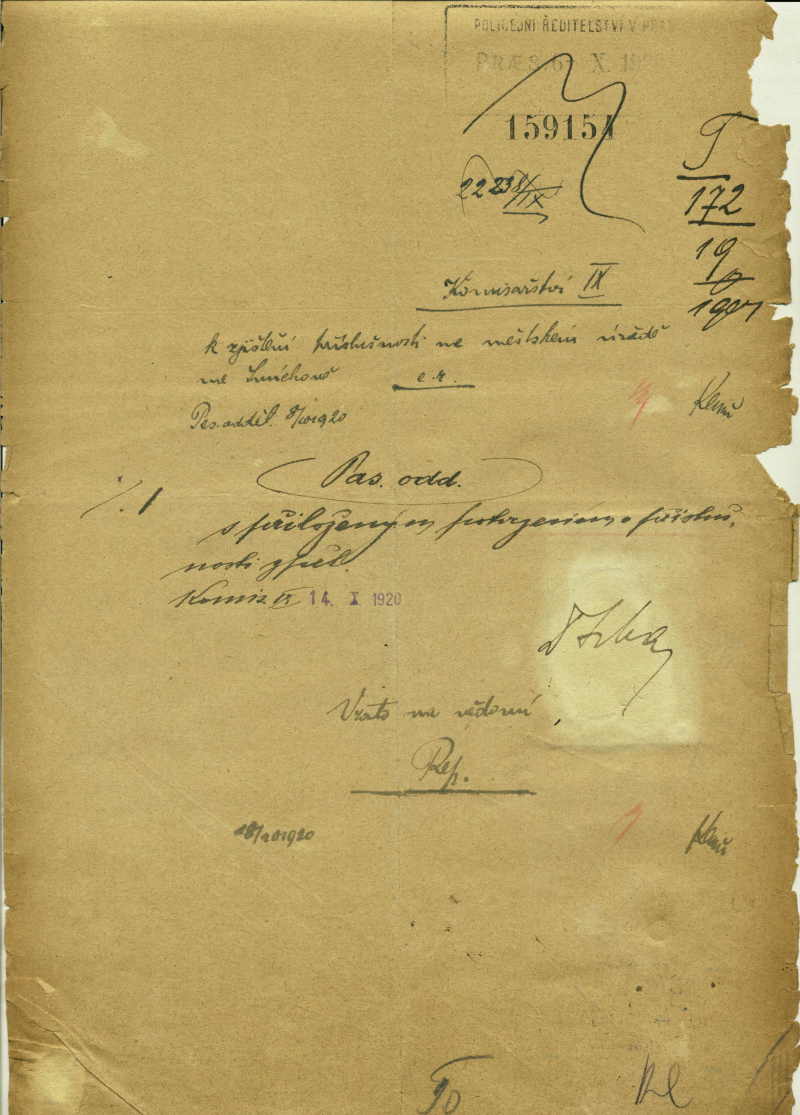 POLICEJNÍ ŘEDITELSTVÍ V
PRÆS. 6 - X. 19
159154
T
172
19
Komisařství IX
k zjištění příslušnosti na městském úřadě
na Smíchově e. r.
Pas. odděl. 8/10 1920
Pas. odd.
./. 1
s přiloženým potvrzením o přísluš-
nosti zpět.
Komis. IX 14. X 1920
Vzato na vědomí
Rep.
18/10 1920